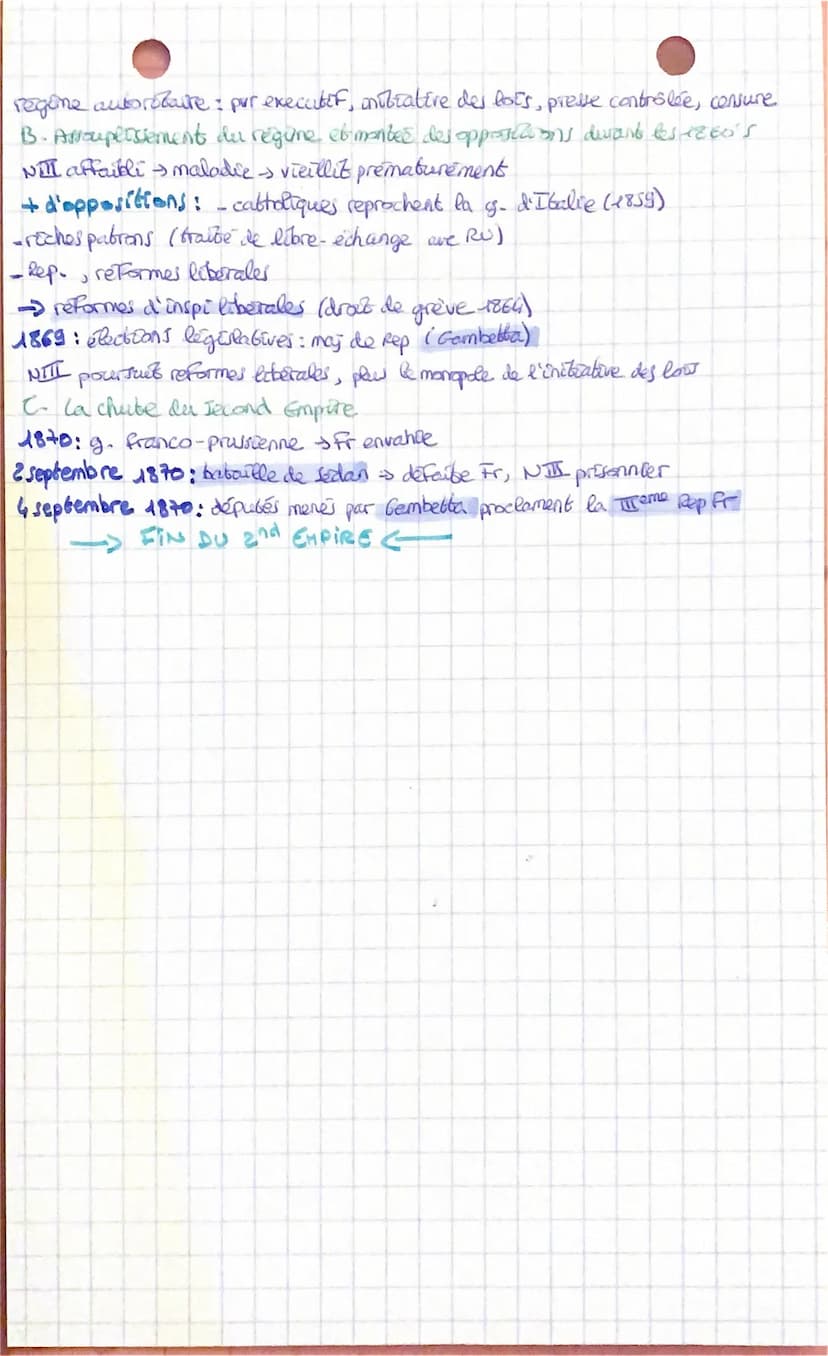 régime autoritaire : pvr executif, initiative des lois, presse contrôlée, censure
B. Assouplissement du régime et montée des oppositions durant les 1860's
NIII affaibli → maladie → vieillit prématurément
+ d'oppositions : - catholiques reprochent la g. d'Italie (1859)
- riches patrons (traité de libre-échange avc RU)
- Rep. , réformes libérales
→ réformes d'inspi libérales (droit de grève 1864)
1869 : élections législatives : maj de Rep (Gambetta)
NIII poursuit réformes libérales, le monopole de l'initiative des lois
C. La chute du Second Empire
1870 : g. franco-prussienne → Fr envahie
2 septembre 1870 : bataille de Sedan → défaite Fr, NIII prisonnier
4 septembre 1870 : députés menés par Gambetta proclament la IIIeme Rep Fr
→ FIN DU 2nd EMPIRE ←